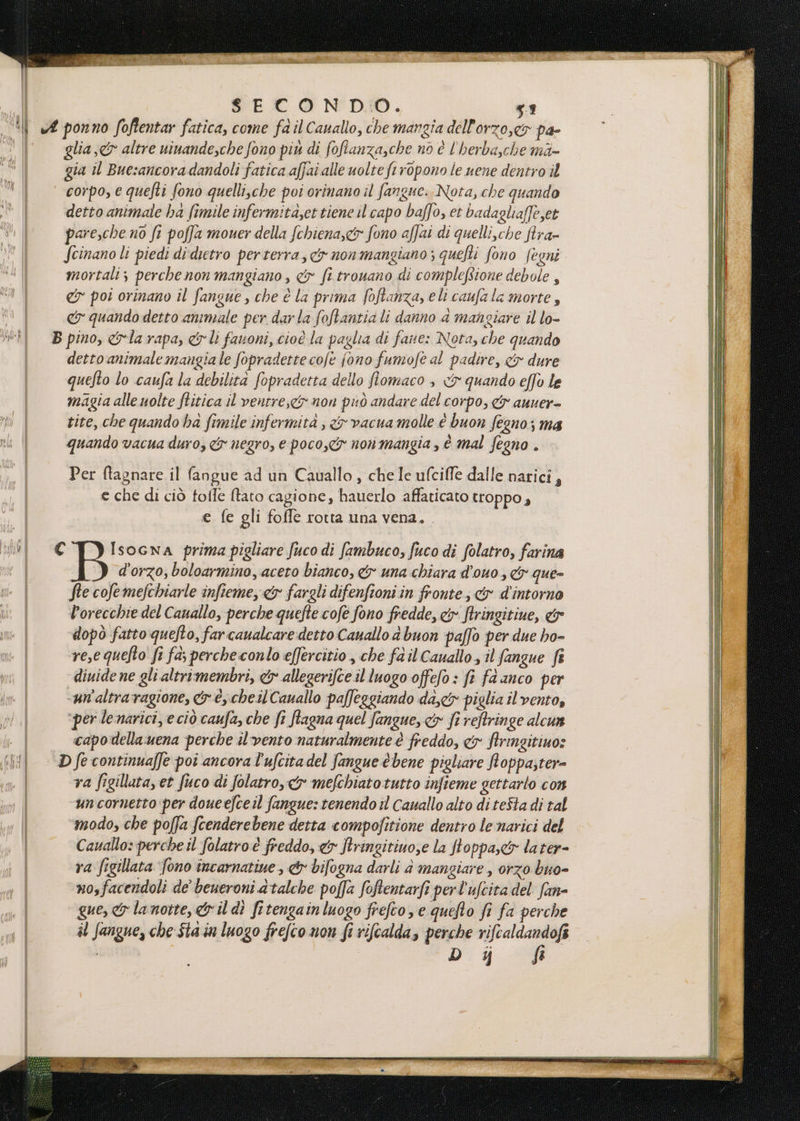 SECONDO. 51
A ponno ſoſtentar fatica, come fà il Cauallo, che mangia dell'orzo, & pa-
glia, & altre uiuande, che ſono più di ſoſtanza, che nō è l'herba, che mā-
gia il Bue: ancora dandoli fatica aſſai alle uolte ſi rōpono le uene dentro il
corpo, e queſti ſono quelli, che poi orinano il ſangue. Nota, che quando
detto animale hà ſimile infermità, et tiene il capo baſſo, et badagliaſſe, et
pare, che nō ſi poſſa mouer della ſchiena, & ſono aſſai di quelli, che ſtra-
ſcinano li piedi di dietro per terra, & non mangiano; queſti ſono ſegni
mortali; perche non mangiano, & ſi trouano di compleſſione debole,
& poi orinano il ſangue, che è la prima ſoſtanza, e li cauſa la morte,
& quando detto animale per dar la ſoſtantia li danno à mangiare il lo-
B pino, & la rapa, & li fauoni, cioè la paglia di faue: Nota, che quando
detto animale mangia le ſopradette coſe ſono fumoſe al padire, & dure
queſto lo cauſa la debilità ſopradetta dello ſtomaco, & quando eſſo le
māgia alle uolte ſtitica il ventre, & non può andare del corpo, & auuer-
tite, che quando hà ſimile infermità, & vacua molle è buon ſegno; ma
quando vacua duro, & negro, e poco, & non mangia, è mal ſegno.
Per ſtagnare il ſangue ad un Cauallo, che le uſciſſe dalle narici,
e che di ciò foſſe ſtato cagione, hauerlo affaticato troppo,
e ſe gli foſſe rotta una vena.
C BIsogna prima pigliare ſuco di ſambuco, ſuco di ſolatro, farina
d'orzo, boloarmino, aceto bianco, & una chiara d'ouo, & que-
ſte coſe meſchiarle inſieme, & fargli difenſioni in fronte, & d'intorno
l'orecchie del Cauallo, perche queſte coſe ſono fredde, & ſtringitiue, &
dopò fatto queſto, far caualcare detto Cauallo à buon paſſo per due ho-
re, e queſto ſi fà; perche con lo eſſercitio, che fà il Cauallo, il ſangue ſi
diuide ne gli altri membri, & allegeriſce il luogo offeſo: ſi fà anco per
un'altra ragione, & è, che il Cauallo paſſeggiando dà, & piglia il vento,
per le narici, e ciò cauſa, che ſi ſtagna quel ſangue, & ſi reſtringe alcun
capo della uena perche il vento naturalmente è freddo, & ſtringitiuo:
D ſe continuaſſe poi ancora l'uſcita del ſangue è bene pigliare ſtoppa, ter-
ra ſigillata, et ſuco di ſolatro, & meſchiato tutto inſieme gettarlo con
un cornetto per doue eſce il ſangue: tenendo il Cauallo alto di teſta di tal
modo, che poſſa ſcendere bene detta compoſitione dentro le narici del
Cauallo: perche il ſolatro è freddo, & ſtringitiuo, e la ſtoppa, & la ter-
ra ſigillata ſono incarnatiue, & biſogna darli à mangiare, orzo buo-
no, facendoli de' beueroni à talche poſſa ſoſtentarſi per l'uſcita del ſan-
gue, & la notte, & il dì ſi tenga in luogo freſco, e queſto ſi fa perche
il ſangue, che ſtà in luogo freſco non ſi riſcalda, perche riſcaldandoſi
D ij ſi